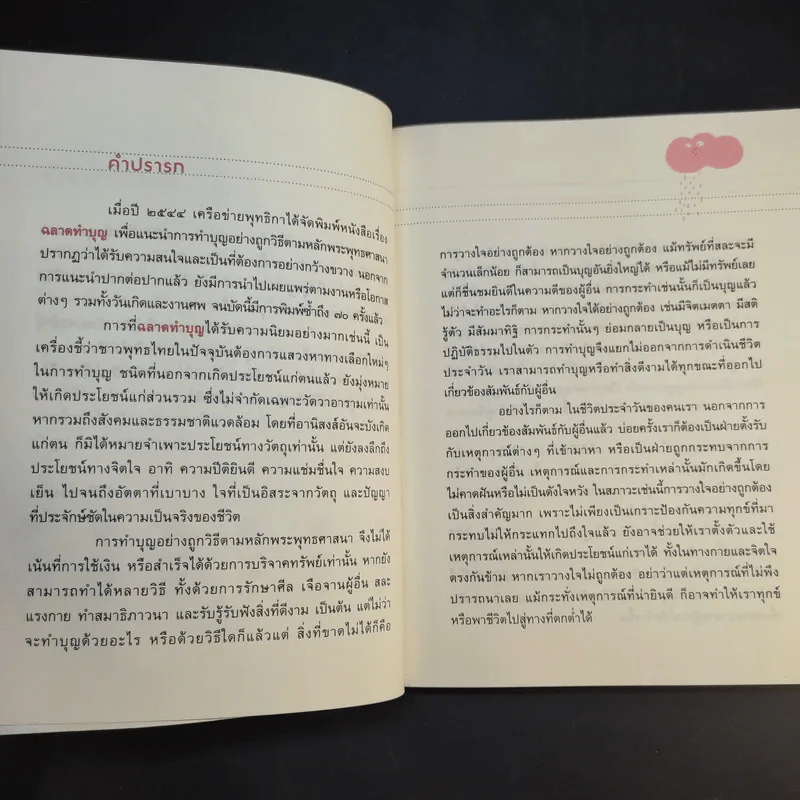 คำปรารภ
เมื่อปี ๒๕๔๔ เครือข่ายพุทธิกาได้จัดพิมพ์หนังสือเรื่อง
ฉลาดทำบุญ เพื่อแนะนำการทำบุญอย่างถูกวิธีตามหลักพระพุทธศาสนา
ปรากฏว่าได้รับความสนใจและเป็นที่ต้องการอย่างกว้างขวาง นอกจาก
การแนะนำปากต่อปากแล้ว ยังมีการนำไปเผยแพร่ตามงานหรือโอกาส
ต่างๆ รวมทั้งวันเกิดและงานศพ จนบัดนี้มีการพิมพ์ซ้ำถึง ๗๐ ครั้งแล้ว
การที่ฉลาดทำบุญได้รับความนิยมอย่างมากเช่นนี้ เป็น
เครื่องชี้ว่าชาวพุทธไทยในปัจจุบันต้องการแสวงหาทางเลือกใหม่ๆ
ในการทำบุญ ชนิดที่นอกจากเกิดประโยชน์แก่ตนแล้ว ยังมุ่งหมาย
ให้เกิดประโยชน์แก่ส่วนรวม ซึ่งไม่จำกัดเฉพาะวัดวาอารามเท่านั้น
หากรวมถึงสังคมและธรรมชาติแวดล้อม โดยที่อานิสงส์อันจะบังเกิด
แก่ตน ก็มิได้หมายจำเพาะประโยชน์ทางวัตถุเท่านั้น แต่ยังลงลึกถึง
ประโยชน์ทางจิตใจ อาทิ ความปีติยินดี ความแช่มชื่นใจ ความสงบ
เย็น ไปจนถึงอัตตาที่เบาบาง ใจที่เป็นอิสระจากวัตถุ และปัญญา
ที่ประจักษ์ชัดในความเป็นจริงของชีวิต
การทำบุญอย่างถูกวิธีตามหลักพระพุทธศาสนา จึงไม่ได้
เน้นที่การใช้เงิน หรือสำเร็จได้ด้วยการบริจาคทรัพย์เท่านั้น หากยัง
สามารถทำได้หลายวิธี ทั้งด้วยการรักษาศีล เจือจานผู้อื่น สละ
แรงกาย ทำสมาธิภาวนา และรับรู้รับฟังสิ่งที่ดีงาม เป็นต้น แต่ไม่ว่า
จะทำบุญด้วยอะไร หรือด้วยวิธีใดก็แล้วแต่ สิ่งที่ขาดไม่ได้ก็คือ
การวางใจอย่างถูกต้อง หากวางใจอย่างถูกต้อง แม้ทรัพย์ที่สละจะมี
จำนวนเล็กน้อย ก็สามารถเป็นบุญอันยิ่งใหญ่ได้ หรือแม้ไม่มีทรัพย์เลย
แต่ก็ชื่นชมยินดีในความดีของผู้อื่น การกระทำเช่นนั้นก็เป็นบุญแล้ว
ไม่ว่าจะทำอะไรก็ตาม หากวางใจได้อย่างถูกต้อง เช่นมีจิตเมตตา มีสติ
รู้ตัว มีสัมมาทิฐิ การกระทำนั้นๆ ย่อมกลายเป็นบุญ หรือเป็นการ
ปฏิบัติธรรมไปในตัว การทำบุญจึงแยกไม่ออกจากการดำเนินชีวิต
ประจำวัน เราสามารถทำบุญหรือทำสิ่งดีงามได้ทุกขณะที่ออกไป
เกี่ยวข้องสัมพันธ์กับผู้อื่น
อย่างไรก็ตาม ในชีวิตประจำวันของคนเรา นอกจากการ
ออกไปเกี่ยวข้องสัมพันธ์กับผู้อื่นแล้ว บ่อยครั้งเราก็ต้องเป็นฝ่ายตั้งรับ
กับเหตุการณ์ต่างๆ ที่เข้ามาหา หรือเป็นฝ่ายถูกกระทบจากการ
กระทำของผู้อื่น เหตุการณ์และการกระทำเหล่านั้นมักเกิดขึ้นโดย
ไม่คาดฝันหรือไม่เป็นดังใจหวัง ในสภาวะเช่นนี้การวางใจอย่างถูกต้อง
เป็นสิ่งสำคัญมาก เพราะไม่เพียงเป็นเกราะป้องกันความทุกข์ที่มา
กระทบไม่ให้กระแทกไปถึงใจแล้ว ยังอาจช่วยให้เราตั้งตัวและใช้
เหตุการณ์เหล่านั้นให้เกิดประโยชน์แก่เราได้ ทั้งในทางกายและจิตใจ
ตรงกันข้าม หากเราวางใจไม่ถูกต้อง อย่าว่าแต่เหตุการณ์ที่ไม่พึง
ปรารถนาเลย แม้กระทั่งเหตุการณ์ที่น่ายินดี ก็อาจทำให้เราทุกข์
หรือพาชีวิตไปสู่ทางที่ตกต่ำได้